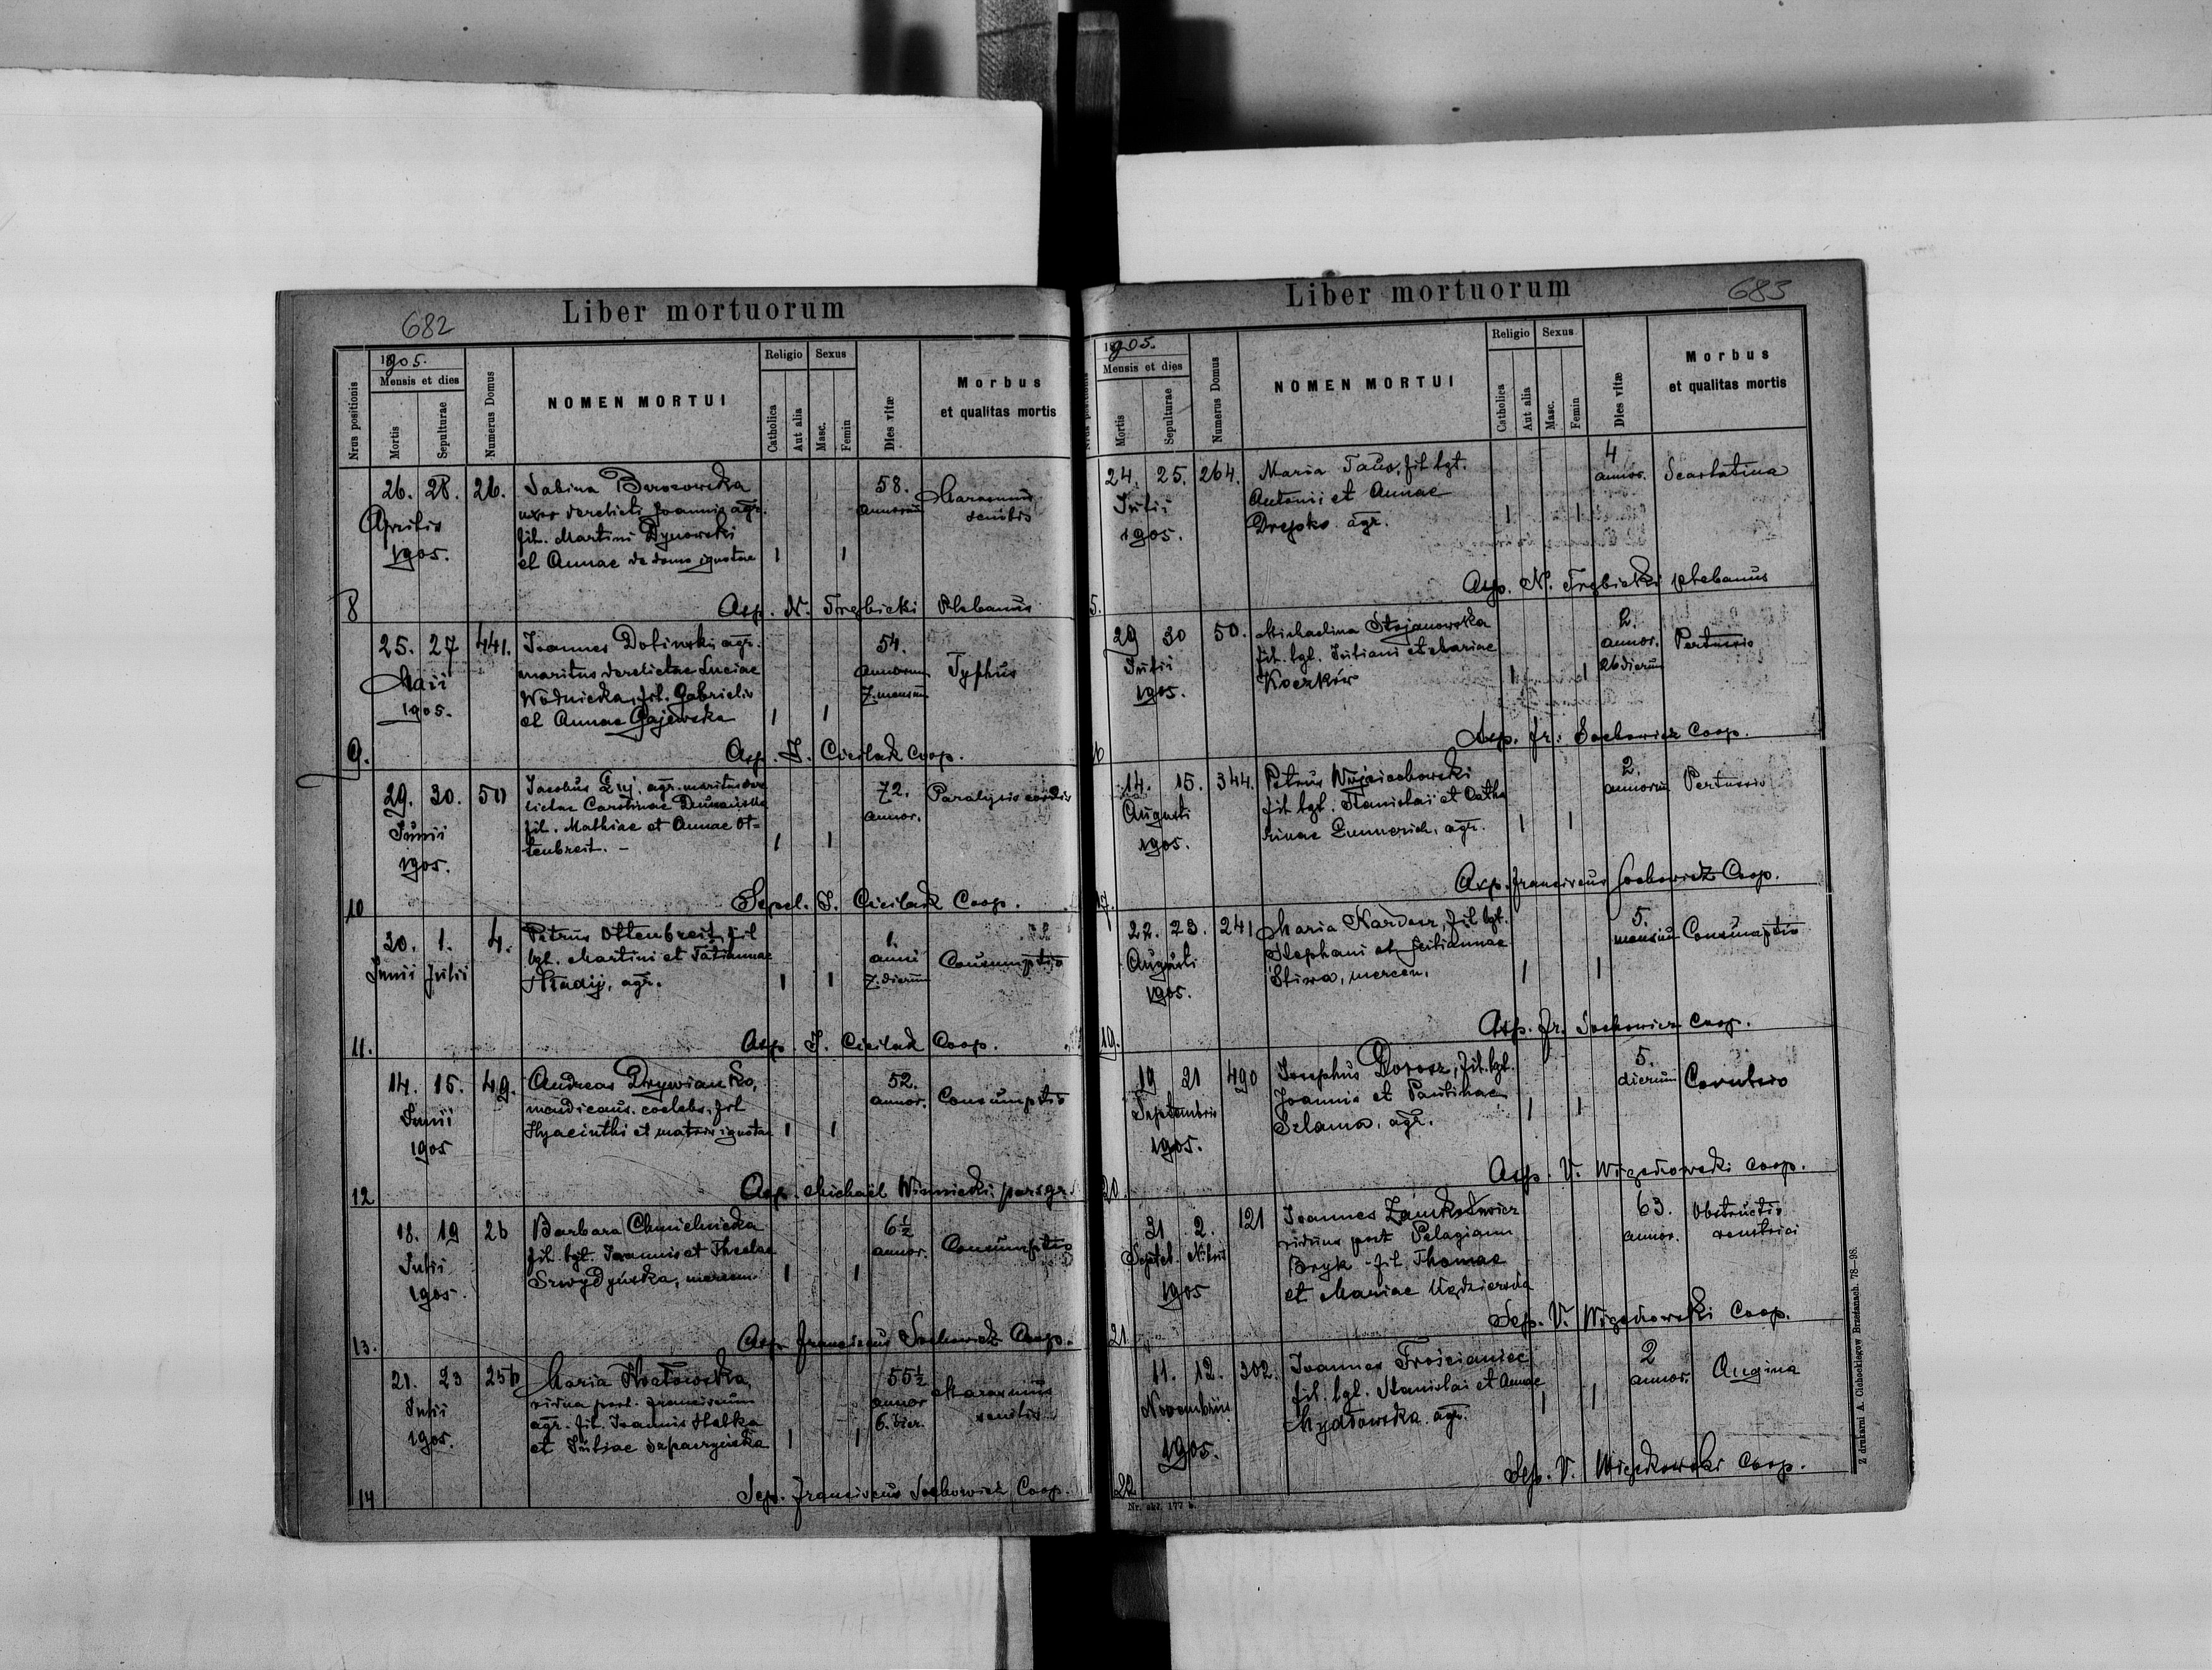 682
Liber mortuorum
Nrus positionis
1905.
Mensis et dies
Mortis
Sepulturae
Numerus Domus
NOMEN MORTUI
Religio
Catholica
Aut alia
Sexus
Masc.
Femin
Dies vitæ
Morbus
et qualitas mortis
8
26. 28. 26.
Aprilis
1905.
Sabina
uxor derelicti Joannis agr.
fil. Martini Dynowski
et Annae de domo ignotae
1 1
58.
annorum
Marasmus
senilis
Asp. N. Trębicki Plebanus
9.
25. 27 441.
Maii
1905.
Joannes Dolinski agr.
maritus derelictae Luciae
Wodnicka, fil. Gabrielis
et Annae Gajewska
1 1
54.
annorum
7. mensium
Typhus
Asp. J. Cieilak Coop.
10
29. 30. 50
Junii
1905.
Jacobus agr. maritus dere
lictae Carolinae
fil. Mathiae et Annae Ot-
tenbreit. -
1 1
72.
annor.
Paralysis cordis
Sepel. J. Cieilak Coop.
11.
30. 1. 4.
Junii Julii
Petrus Ottenbreit, fil
lgt. Martini et Tatiannae
Hladij, agr.
1 1
1.
anni
7. dierum
Consumptio
Asp. J. Cieilak Coop.
12
14. 15. 49.
Junii
1905
Andreas Drywianko,
mendicans. coelebs. fil
Hyacinthi et matris ignotae
1 1
52.
annor.
Consumptio
Asp. Michaël Winnicki
13.
18. 19 26
Julii
1905.
Barbara Chmielnicka
fil. lgt. Joannis et Theclae
mercen.
1 1
6½
annor.
Consumptio
Asp. Franciscus Sochowicz Coop.
14
21. 23 256
Julii
1905.
Maria
vidua post. Franciscum
agr. fil. Joannis
et Juliae
1 1
55½
annor
6. dier.
Marasmus
senilis
Sep. Franciscus Sochowicz Coop.
683
Liber mortuorum
Nrus positionis
1905.
Mensis et dies
Mortis
Sepulturae
Numerus Domus
NOMEN MORTUI
Religio
Catholica
Aut alia
Sexus
Masc.
Femin
Dies vitæ
Morbus
et qualitas mortis
24. 25. 264.
Julii
1905.
Maria fil. lgt.
Antonii et Annae
Drepko agr.
1 1
4
annor.
Scarlatina
Asp. N. Trębicki plebanus
29 30 50.
Julii
1905.
Michaelina Stojanowska
fil. lgt. Juliani et Mariae
Koczków
1 1
2.
annor.
26 dierum
Pertussio
Asp. Fr. Sochowicz Coop.
14. 15. 344.
Augusti
1905.
Petrus Wojciechowski
fil lgt. Stanislai et Catha
rinae Emmerich, agr.
1 1
2.
annorum
Pertussio
Asp. Franciscus Sochowicz Coop.
19.
22. 23. 241
Augusti
1905.
Maria Kardasz, fil lgt.
Stephani et Juliannae
Sliwa, mercen.
1 1
5.
mensium
Consumptio
Asp. Fr. Sochowicz Coop.
20.
19 21 490
Septembris
1905.
Josephus Dorosz, fil. lgt.
Joannis et Paulinae
Szlama, agr.
1 1
5.
dierum
Asp. V. Coop.
21
31 2. 121
1905
Joannes
viduus post Pelagiam
Bryk - fil. Thomae
et Mariae
63.
annor.
Obstructio
ventrici
Sep. V. Coop.
22
11. 12. 302.
Novembris
1905.
Joannes Trościaniec
fil. lgt. Stanislai et Annae
agr.
1 1
2
annor.
Angina
Sep. V. Coop.
Nr. skł. 177 b.
Z drukarni A. Cichockiego w Brzeżanach. 78—98.